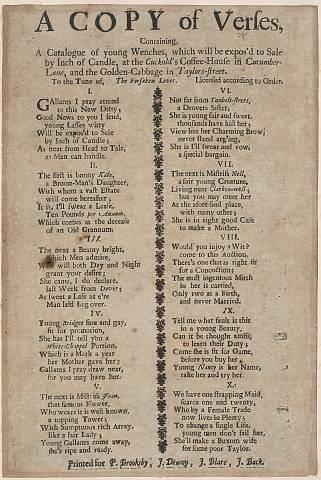 A COPY of Verses,
Containing,
A Catalogue of young Wenches, which will be expos'd to Sale
by Inch of Candle, at the Cuckold's Coffee-House in Cucumber-
Lane, and the Golden-Cabbage in Taylors-street.
To the Tune of, The Forsaken Lover. Licensed according to Order.
I.
GAllants I pray attend
to this New Ditty,
Good News to you I send,
young Lasses witty
Will be expos'd to Sale
by Inch of Candle;
As neat from Head to Tale,
as Man can handle.
II.
The first is bonny Kate,
a Broom-Man's Daughter,
With whom a vast Estate
will come hereafter;
It is, I'll swear a Lease,
Ten Pounds per Annum,
Which comes at the decease
of an Old Grannum
III.
The next a Beauty bright,
which Men admire,
Who will both Day and Night
grant your desire;
She came, I do declare,
last Week from Dover;
As sweet a Lass as e're
Man laid Leg over.
IV.
Young Bridget fine and gay,
fit for promotion,
She has I'll tell you a
White-Chappel Portion,
Which is a Mark a year
her Mother gave her;
Gallants I pray draw near,
for you may have her.
V.
The next is Mistriss Joan,
that famous Flower,
Who wears it is well known,
a topping Tower;
With Sumptuous rich Array,
like a fair Lady;
Young Gallants come away,
she's ripe and ready.
VI.
Not far from Turnbull-street,
a Drovers Sister,
She is young fair and sweet,
thousands have kist her;
View but her Charming Brow,
never stand arguing,
She is I'll swear and vow,
a special bargain.
VII.
The next is Mistriss Nell,
a fair young Creature,
Living near Clarkenwell,
but you may meet her
At the afore-said place,
with many other;
She is in right good Case
to make a Mother.
VIII.
Would you injoy a Wit?
come to this Auction,
There's one that is right fit
for a Concoction;
The most ingenious Mirth
in her is carried,
Only two at a Birth,
and never Married.
IX.
Tell me what fault is this
in a young Beauty,
Can it be thought amiss,
to learn their Duty;
Come she is fit for Game,
before you buy her,
Young Nancy is her Name,
take her and try her.
X.
We have one strapping Maid,
scarce one and twenty,
Who by a Female Trade
now lives in Plenty;
To change a single Life,
young man don't fail her,
She'll make a Buxom wife
for some poor Taylor.
Printed for P. Brooksby, J. Deacon, J. Blare, J. Back.